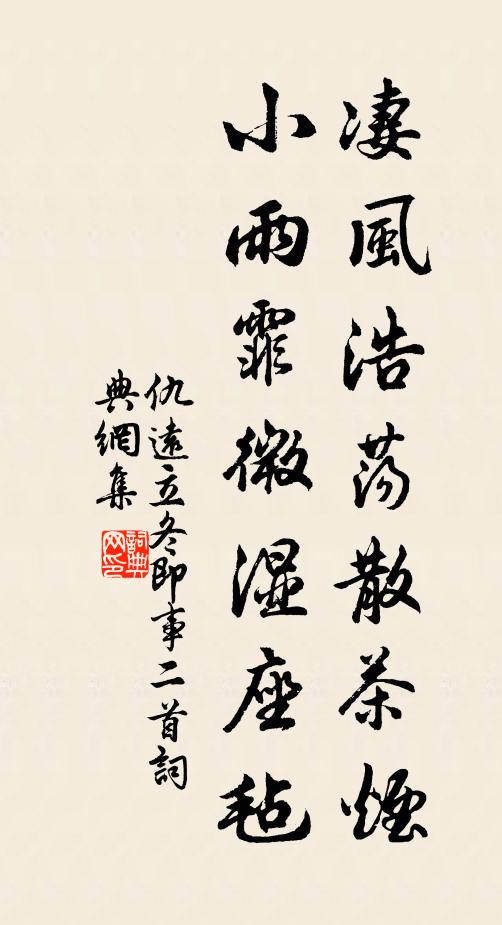 凄風浩荡散茶煙
小雨霏微湿座毡
仇遠立冬即事二首詞
典網集
詞典网印